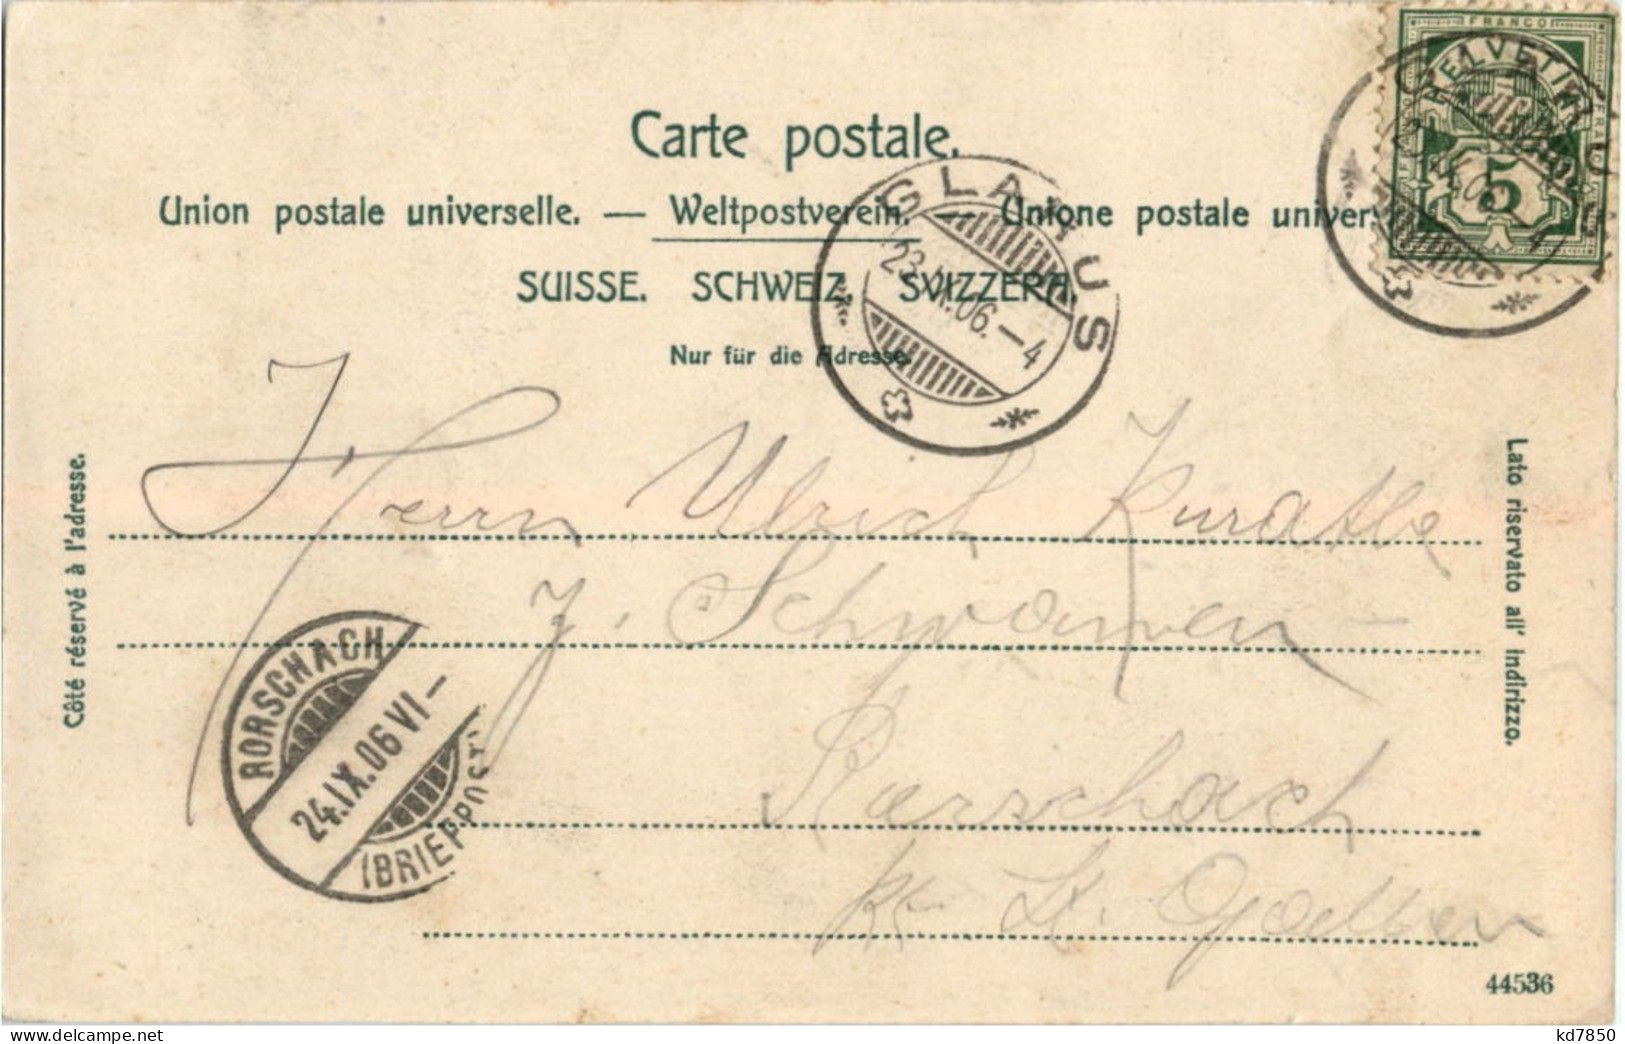 FRANCO
HELVETIA
5
Carte postale.
Union postale universelle. — Weltpostverein. — Unione postale univer
SUISSE. SCHWEIZ. SVIZZERA.
Nur für die Adresse.
GLARUS
23.IX.06.—4
Côté réservé à l'adresse.
Lato riservato all' indirizzo.
Herrn Ulrich Kuratle
z. Schwanen
Rorschach
Kt. St. Gallen
RORSCHACH
24.IX.06 VI—
(BRIEFPOST)
44536
kd7850